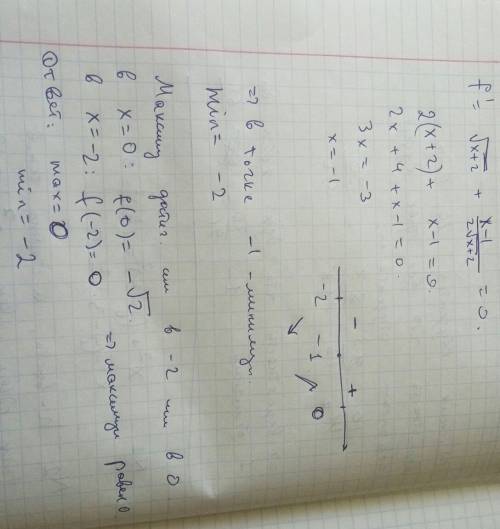 f' = √(x+2) + (x-1)/(2√(x+2)) = 0.
2(x+2) + x-1 = 0.
2x + 4 + x-1 = 0.
3x = -3
x = -1
- +
-2 -1 0
=> в точке -1 - минимум.
min = -2
Максимум достиг. или в -2 или в 0
в x=0: f(0) = -√2.
в x=-2: f(-2)=0. => максимум равен 0
Ответ: max=0
min = -2